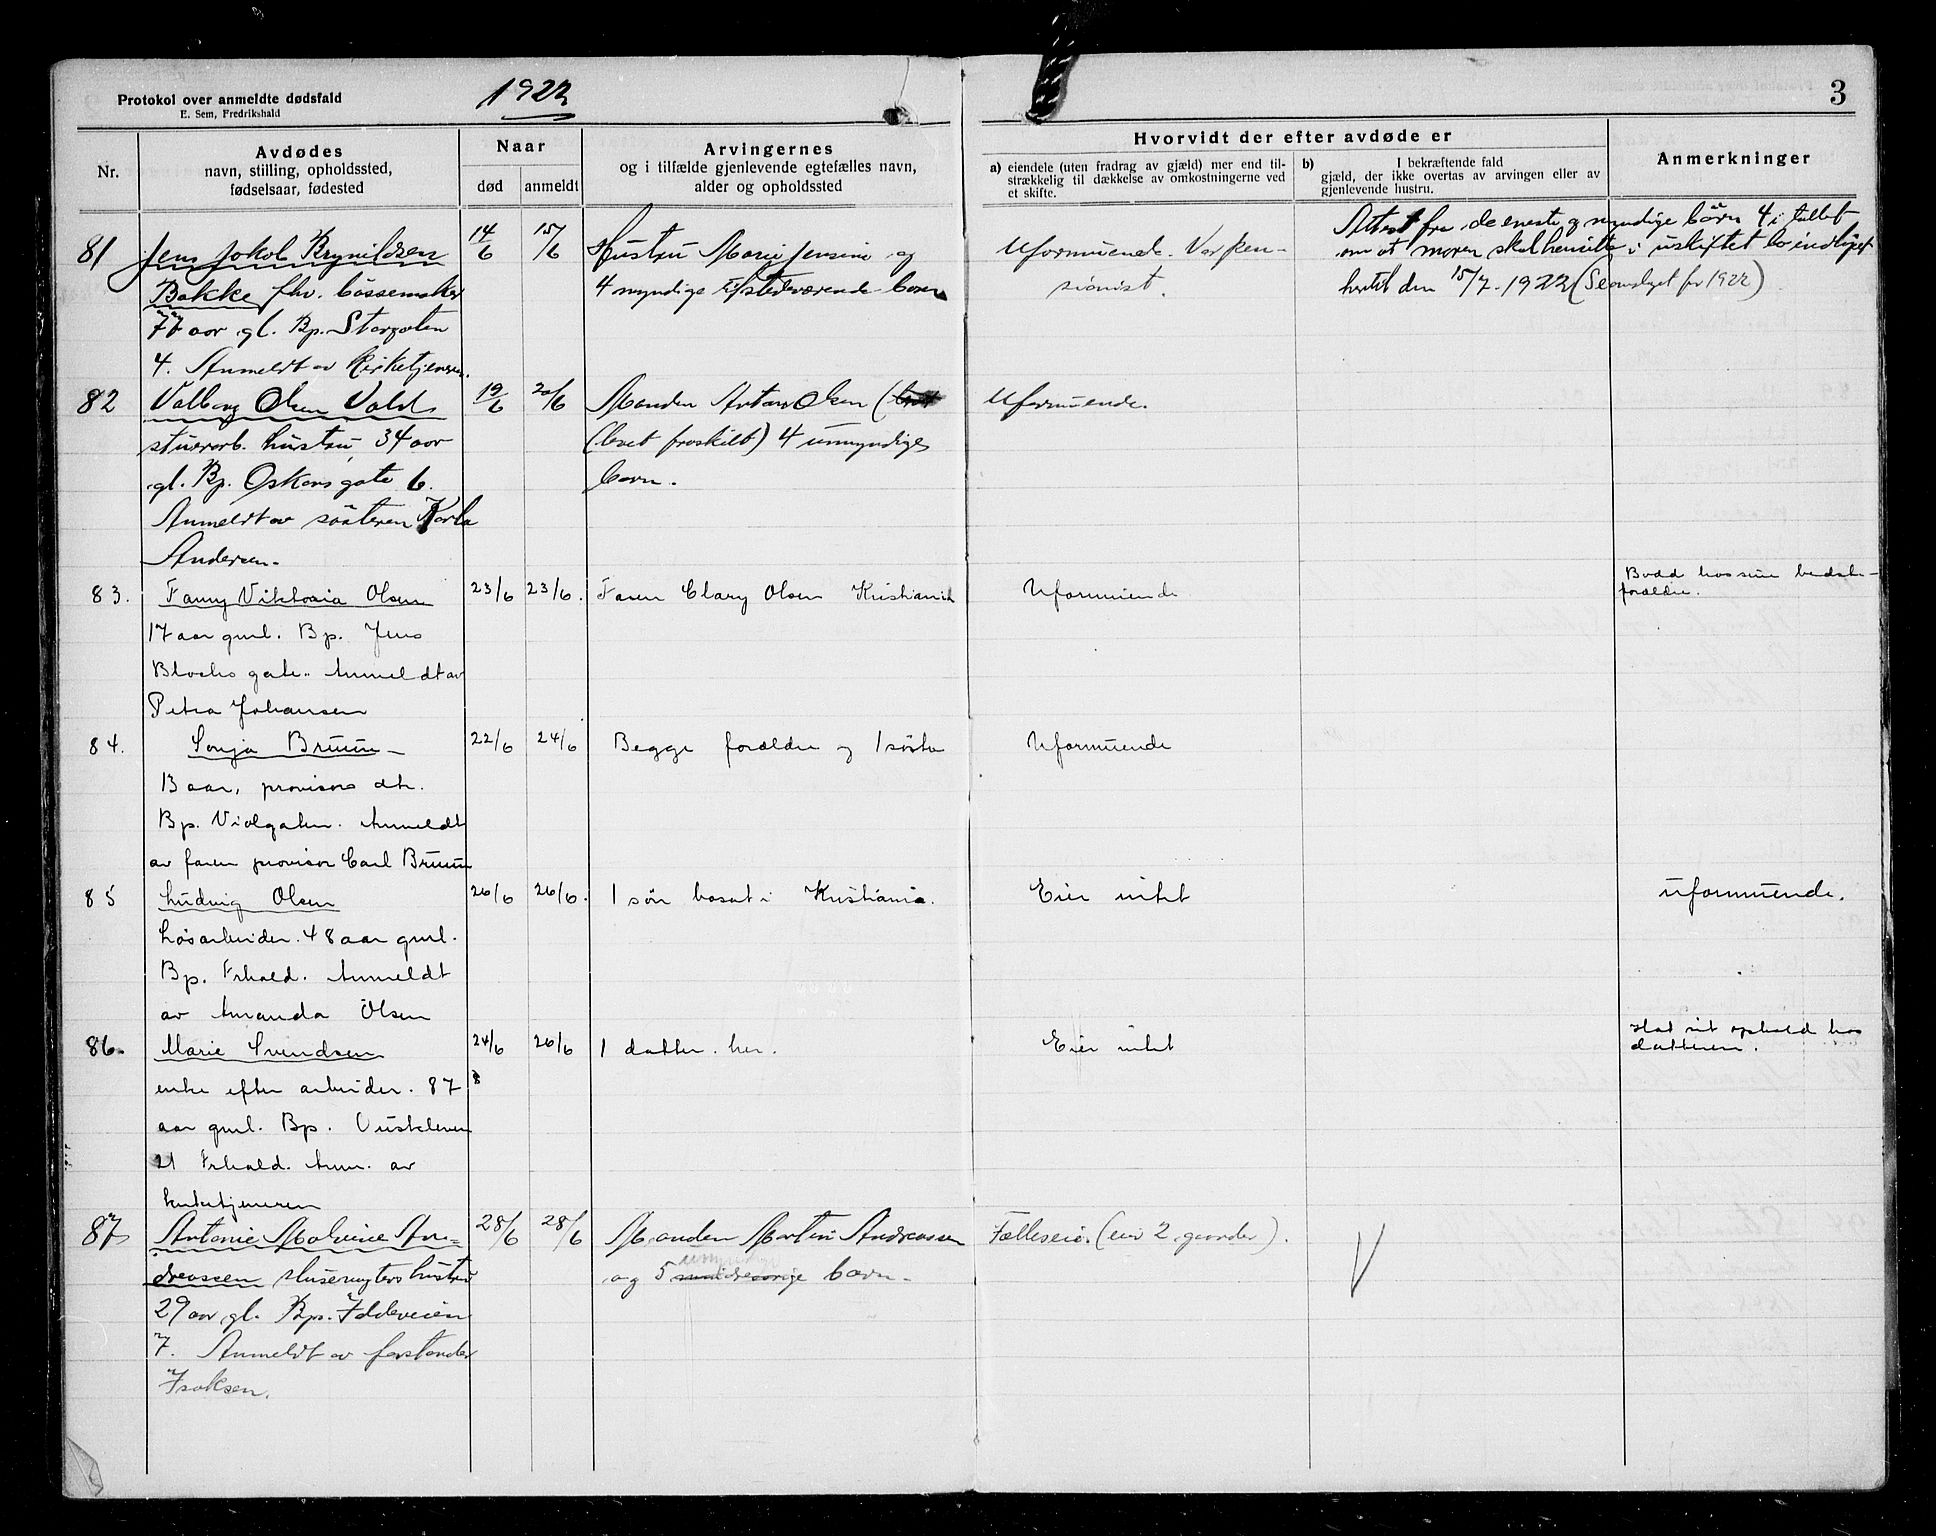 Protokol over anmeldte dødsfald
E. Sem, Fredrikshald
1922
3
Nr.
Avdødes
navn, stilling, opholdssted,
fødselsaar, fødested
Naar
død
anmeldt
Arvingernes
og i tilfælde gjenlevende egtefælles navn,
alder og opholdssted
Hvorvidt der efter avdøde er
a) eiendele (uten fradrag av gjæld) mer end til-
strækkelig til dækkelse av omkostningerne ved
et skifte.
b) I bekræftende fald
gjæld, der ikke overtas av arvingen eller av
gjenlevende hustru.
Anmerkninger
81
Jens Jakob Brynildsen
Bakke fhv. bössemaker
77 aar gl. Bp. Storgaten
4. Anmeldt av kirketjeneren.
14/6
15/6
Hustru Marie Jensine og
4 myndige tilstedeværende barn
Uformuende. Var pen-
sionist.
Attest fra de eneste og myndige børn 4 i tallet
om at moren skal hensitte i uskiftet bo indlöpet
hertil den 15/7-1922 (Se omslaget for 1922)
82
Valborg Olsen Vold
stuerarb. hustru, 34 aar
gl. Bp. Oskars gate 6.
Anmeldt av søsteren Karla
Andersen.
19/6
20/6
Manden Anton Olsen (
(levet fraskilt) 4 umyndige
barn.
Uformuende.
83.
Fanny Viktoria Olsen
17 aar gml. Bp. Jens
Blochs gate. Anmeldt av
Petra Johansen
23/6
23/6.
Faren Clary Olsen Kristiania
Uformuende
Bodd hos sine bedste-
forældre.
84.
Sonja Bruun
13 aar, provisors dtr.
Bp. Violgaten. Anmeldt
av faren provisor Carl Bruun
22/6
24/6
Begge forældre og 1 söster
Uformuende
85
Ludvig Olsen
Løsarbeider. 48 aar gml.
Bp. Frhald. Anmeldt
av Amanda Olsen
26/6
26/6.
1 sön bosat i Kristiania.
Eier intet
uformuende.
86.
Marie Svendsen
enke efter arbeider. 87
aar gml. Bp.
21 Frhald. Anm. av
kirketjeneren
24/6
26/6
1 datter. her.
Eier intet
Hat sit ophold hos
datteren.
87
Antonie Malvine An-
dreassen Husenyters hustru
29 aar gl. Bp. Iddeveien
7. Anmeldt av forstander
Isaksen.
28/6
28/6
Manden Martin Andreassen
umyndige
og 5 mindreaarige barn.
Fælleseie. (eier 2 gaarder).
V